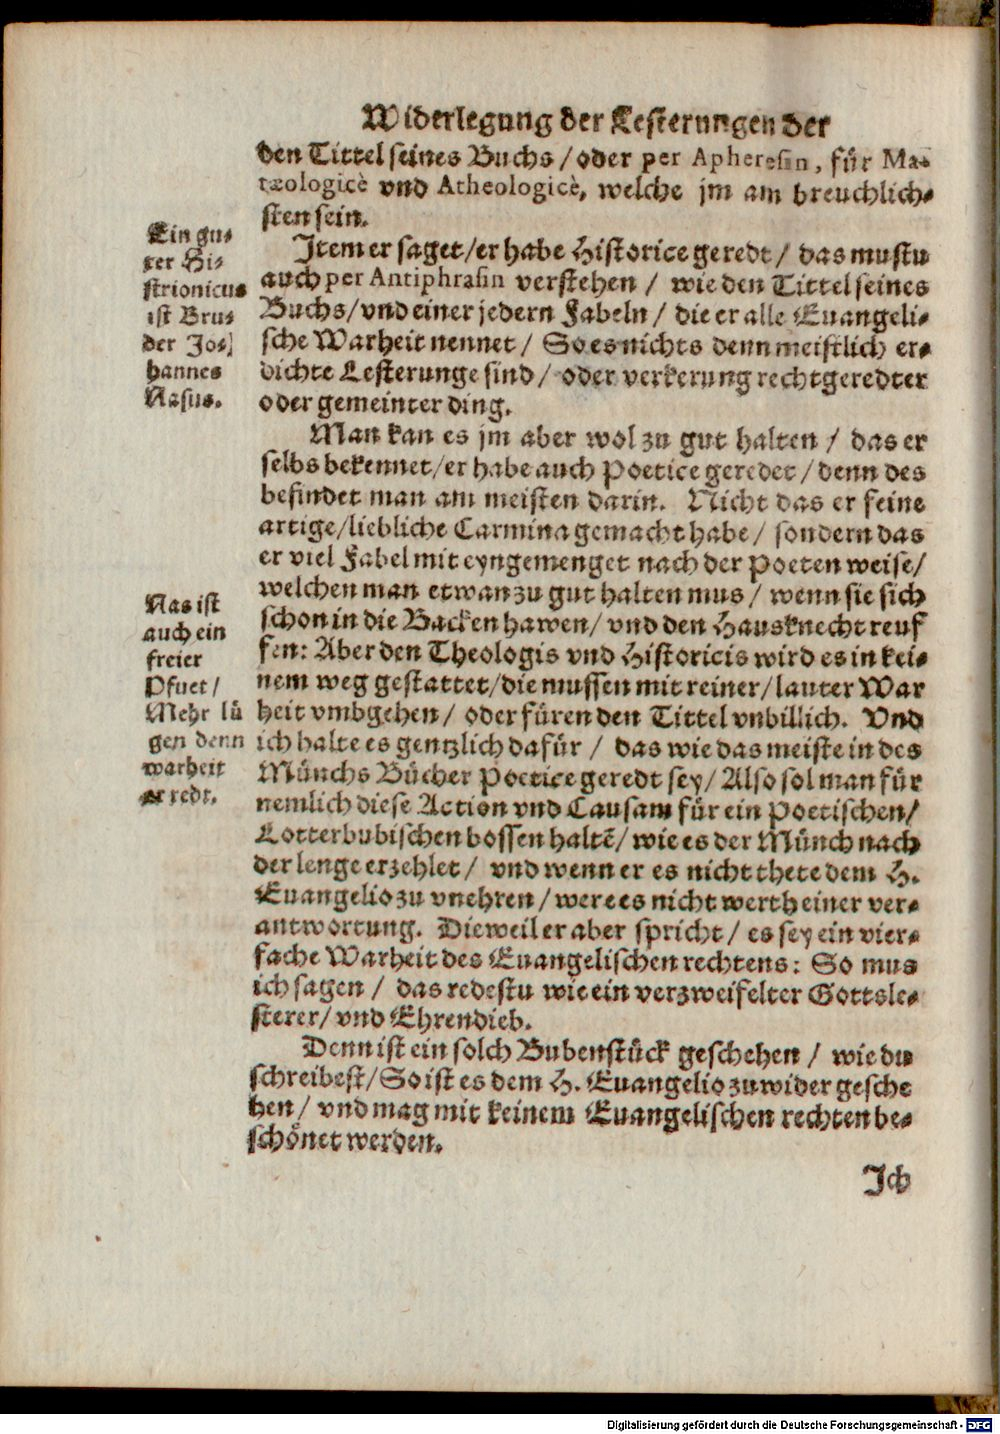 Widerlegung der Lesterungen der
den Tittel seines Buchs / oder per Apheresin, für Ma-
tæologicè vnd Atheologicè, welche jm am breuchlich-
sten sein.
Ein gu-
ter Hi-
strionicus
ist Bru-
der Jo-
hannes
Nasus.
Item er saget / er habe Historice geredt / das mustu
auch per Antiphrasin verstehen / wie den Tittel seines
Buchs / vnd einer jedern Fabeln / die er alle Euangeli-
sche Warheit nennet / So es nichts denn meistlich er-
dichte Lesterunge sind / oder verkerung rechtgeredter
oder gemeinter ding.
Man kan es jm aber wol zu gut halten / das er
selbs bekennet / er habe auch Poetice geredet / denn des
befindet man am meisten darin. Nicht das er feine
artige / liebliche Carmina gemacht habe / sondern das
er viel Fabel mit eyngemenget nach der Poeten weise /
welchen man etwan zu gut halten mus / wenn sie sich
Nas ist
auch ein
freier
Pfuet /
Mehr lü
gen denn
warheit
er redt.
schon in die Backen hawen / vnd den Hausknecht reuf
fen: Aber den Theologis vnd Historicis wird es in kei-
nem weg gestattet / die mussen mit reiner / lauter War
heit vmbgehen / oder füren den Tittel vnbillich. Vnd
ich halte es gentzlich dafür / das wie das meiste in des
Münchs Bücher Poetice geredt sey / Also sol man für
nemlich diese Action vnd Causam für ein Poetischen /
Lotterbubischen bossen haltẽ / wie es der Münch nach
der lenge erzehlet / vnd wenn er es nicht thete dem H.
Euangelio zu vnehren / were es nicht werth einer ver-
antwortung. Dieweil er aber spricht / es sey ein vier-
fache Warheit des Euangelischen rechtens: So mus
ich sagen / das redestu wie ein verzweifelter Gottsle-
sterer / vnd Ehrendieb.
Denn ist ein solch Bubenstück geschehen / wie du
schreibest / So ist es dem H. Euangelio zuwider gesche
hen / vnd mag mit keinem Euangelischen rechten be-
schönet werden.
Ich
Digitalisierung gefördert durch die Deutsche Forschungsgemeinschaft - DFG